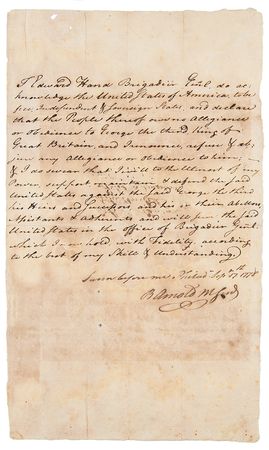 I Edward Hand Brigadier Genl. do ac-
knowledge the United States of America, to be
free, Independent & Sovereign States, and declare
that the People thereof owe no Allegiance
or obedience to George the third King of
Great Britain, and I renounce, refuse & ab-
jure any Allegiance or obedience to him;
& I do swear that I will to the Utmost of my
Power, support, maintain & defend the said
United States against the said George the third
his Heirs and Successors and his or their Abettors,
Assistants & adherents and will serve the said
United States in the office of Brigadier Genl.
which I now hold with Fidelity, according
to the best of my Skill & Understanding
Sworn before me, Philad Sepr. 17th 1778
B Arnold M Genl